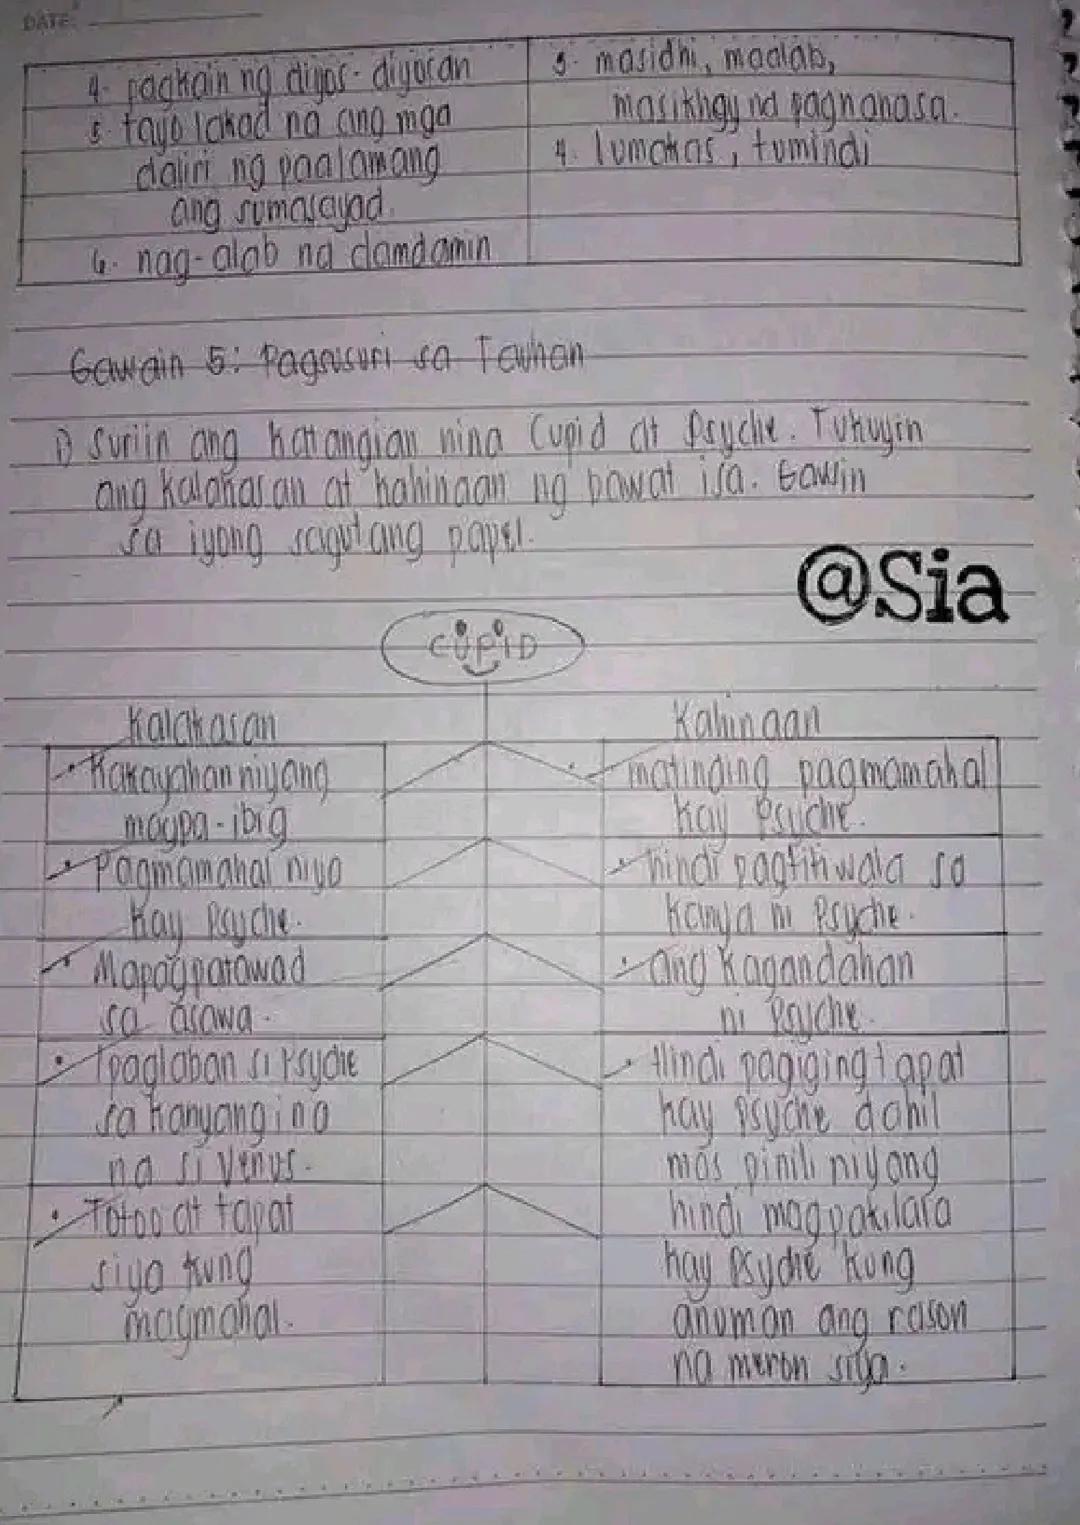 DATE:
4. pagkain ng diyos-diyosan
5. tayo lakad na ang mga
daliri ng paalamang
ang sumasayad.
6. nag-alab na damdamin
3. masidhi, maalab,
na pagnanasa.
4. lumakas, tumindi
Gawain 5: Pagsusuri sa Tauhan
1) Suriin ang katangian nina Cupid at Psyche. Tukuyin
ang kalakasan at kahinaan ng bawat isa. Gawin
sa iyong sagutang papel.
@Sia
CUPID
Kalakasan
• Kakayahan niyang
magpa-ibig
• Pagmamahal niya
kay Psyche.
• Mapagpatawad
sa asawa.
• Ipaglaban si Psyche
sa kanyang ina
na si Venus.
• Totoo at tapat
siya kung
magmahal.
Kahinaan
• matinding pagmamahal
kay Psyche.
• hindi pagtitiwala sa
kanya ni Psyche.
• ang kagandahan
ni Psyche.
• Hindi pagiging tapat
kay Psyche dahil
mas pinili niyang
hindi magpakilala
kay Psyche kung
anuman ang rason
na meron siya.